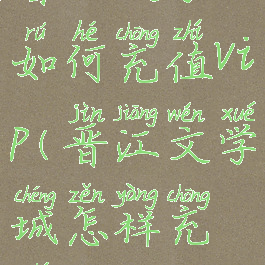 rú hé chōng zhí
如何充值Vi
jìn jiāng wén xué
P(晋江文学
chéng zěn yàng chōng
城怎样充